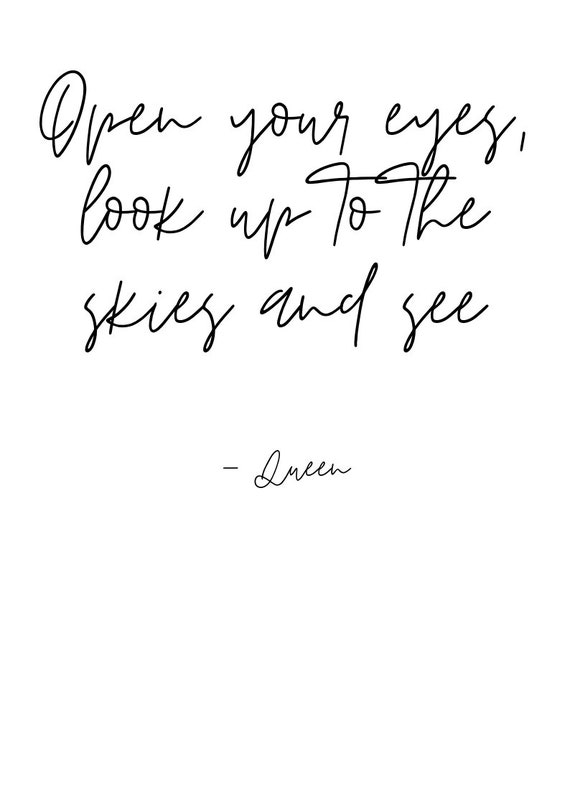 Open your eyes,
look up to the
skies and see
- Queen